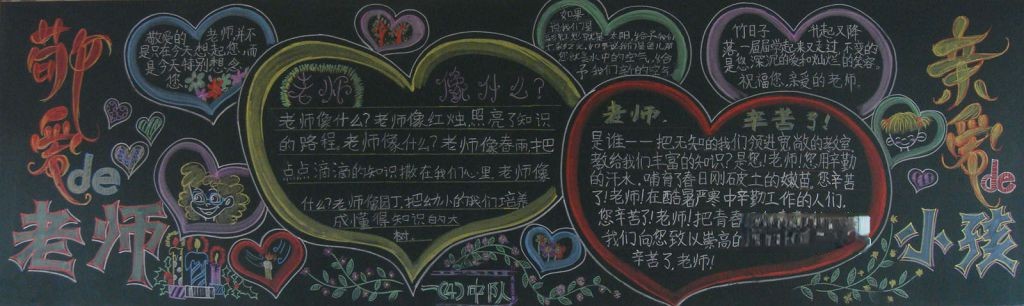 敬爱
de
老师
敬爱的 老师,并不
是只在今天想起您,而
是今天特别想念
您
老师 像什么?
老师像什么?老师像红烛,照亮了知识
的路程。老师像什么?老师像春雨,把
点点滴滴的知识撒在我们心里,老师像
什么?老师像园丁,把幼小的我们培养
成懂得知识的大
树.
如果
予我们
竹日子 书起又降
不变的
是您深沉的爱和灿烂的笑容.
祝福您,亲爱的老师.
老师. 辛苦了!
是谁——把无知的我们领进宽敞的教室
教给我们丰富的知识?是您!老师!您用辛勤
的汗水,哺育了春日刚破土的嫩苗.您辛苦
了!老师!在酷暑严寒中辛勤工作的人们,
您辛苦了!老师!把青春
我们向您致以崇高的
辛苦了,老师!
亲爱
de
小孩
一(4)中队